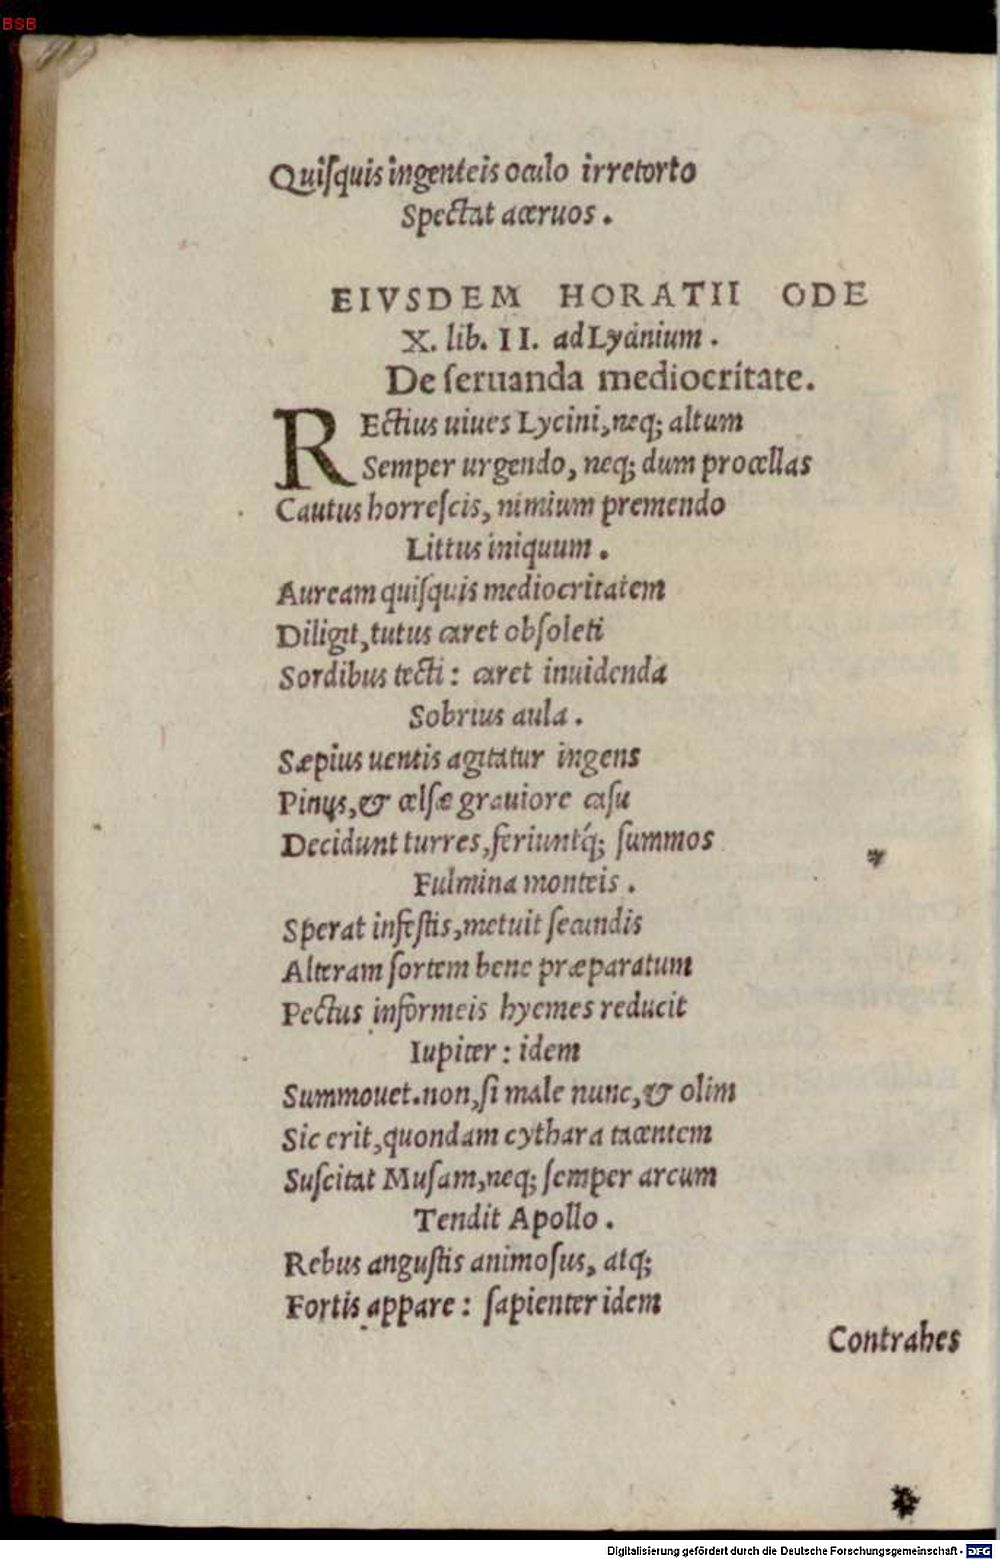 BSB
Quiſquis ingenteis oculo irretorto
Spectat aceruos.
EIVSDEM HORATII ODE
X. lib. II. ad Lycinium.
De ſeruanda mediocritate.
REctius uiues Lycini, neq; altum
Semper urgendo, neq; dum procellas
Cautus horreſcis, nimium premendo
Littus iniquum.
Auream quiſquis mediocritatem
Diligit, tutus caret obſoleti
Sordibus tecti: caret inuidenda
Sobrius aula.
Sæpius uentis agitatur ingens
Pinus, & celſæ grauiore caſu
Decidunt turres, feriuntq́; ſummos
Fulmina monteis.
Sperat infeſtis, metuit ſecundis
Alteram ſortem bene præparatum
Pectus informeis hyemes reducit
Iupiter: idem
Summouet. non, ſi male nunc, & olim
Sic erit, quondam cythara tacentem
Suſcitat Muſam, neq; ſemper arcum
Tendit Apollo.
Rebus anguſtis animoſus, atq;
Fortis appare: ſapienter idem
Contrahes
Digitalisierung gefördert durch die Deutsche Forschungsgemeinschaft - DFG